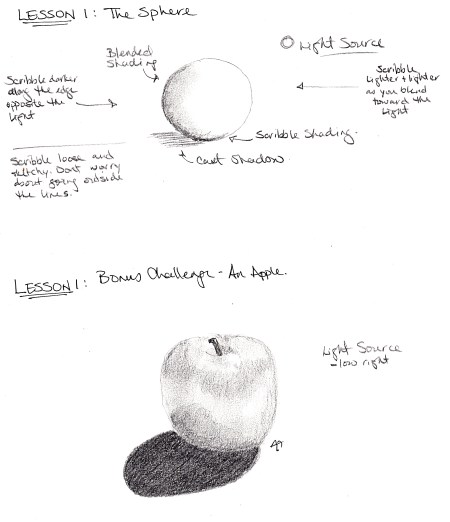 LESSON 1: The Sphere
Blended
Shading
Light Source
Scribble darker
along the edge
opposite the
light
Scribble
lighter + lighter
as you blend
toward the
Light
Scribble Shading.
Cast Shadow
Scribble loose and
sketchy. Dont worry
about going outside
the lines.
LESSON 1: Bonus Challenge - An Apple.
Light Source
- low right